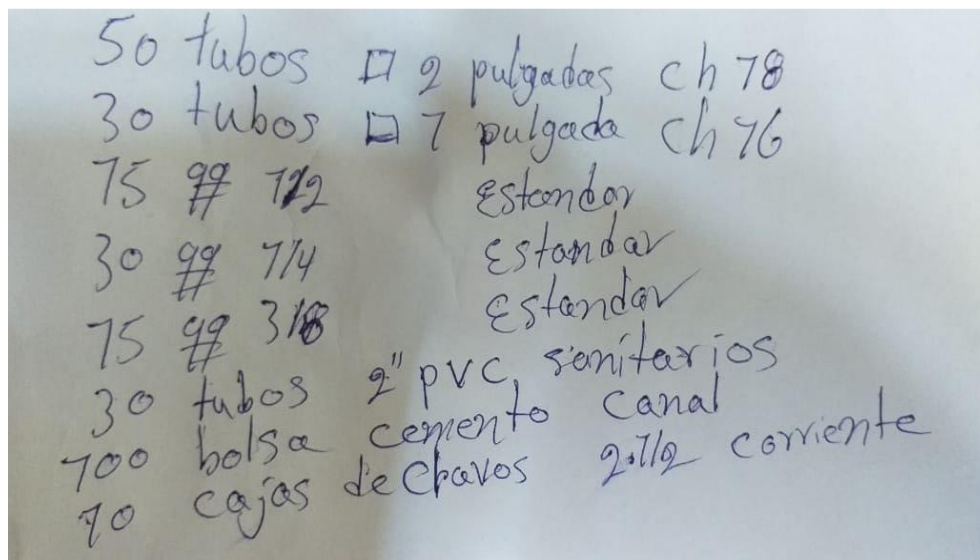 50 tubos □ 2 pulgadas ch 18
30 tubos □ 1 pulgada ch 16
15 qq 1/2 Estandar
30 qq 1/4 Estandar
15 qq 3/8 Estandar
30 tubos 2" pvc, sanitarios
100 bolsa cemento canal
10 cajas de clavos 2.1/2 corriente